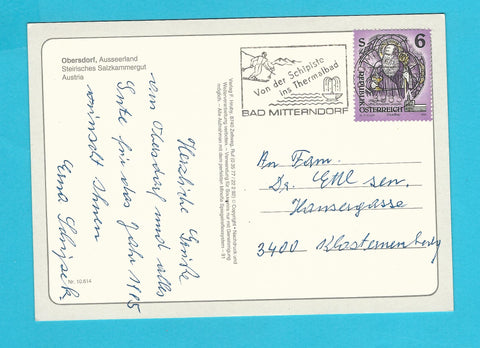 Obersdorf, Ausseerland
Steirisches Salzkammergut
Austria
Herzliche Grüße
von Obersdorf und alles
Gute für das Jahr 1995
wünscht Ihnen
Erna
Nr. 10.614
Von der Schipiste
ins Thermalbad
BAD MITTERNDORF
S 6
REPUBLIK
ÖSTERREICH
An Fam.
Dr. sen.
Hansergasse
3400 Klosterneuburg